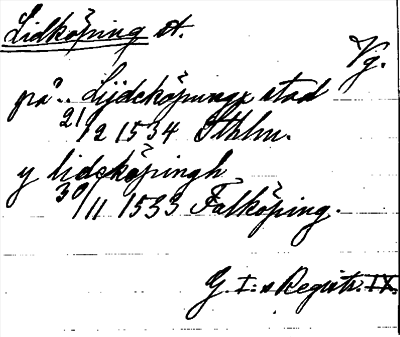 Lidköping st.
Vg.
på.. Lijdeköpungx stad
21/2 1534 Sthlm.
y lidzköpingh
30/11 1533 Falköping.
G. I:s Registr. IX.